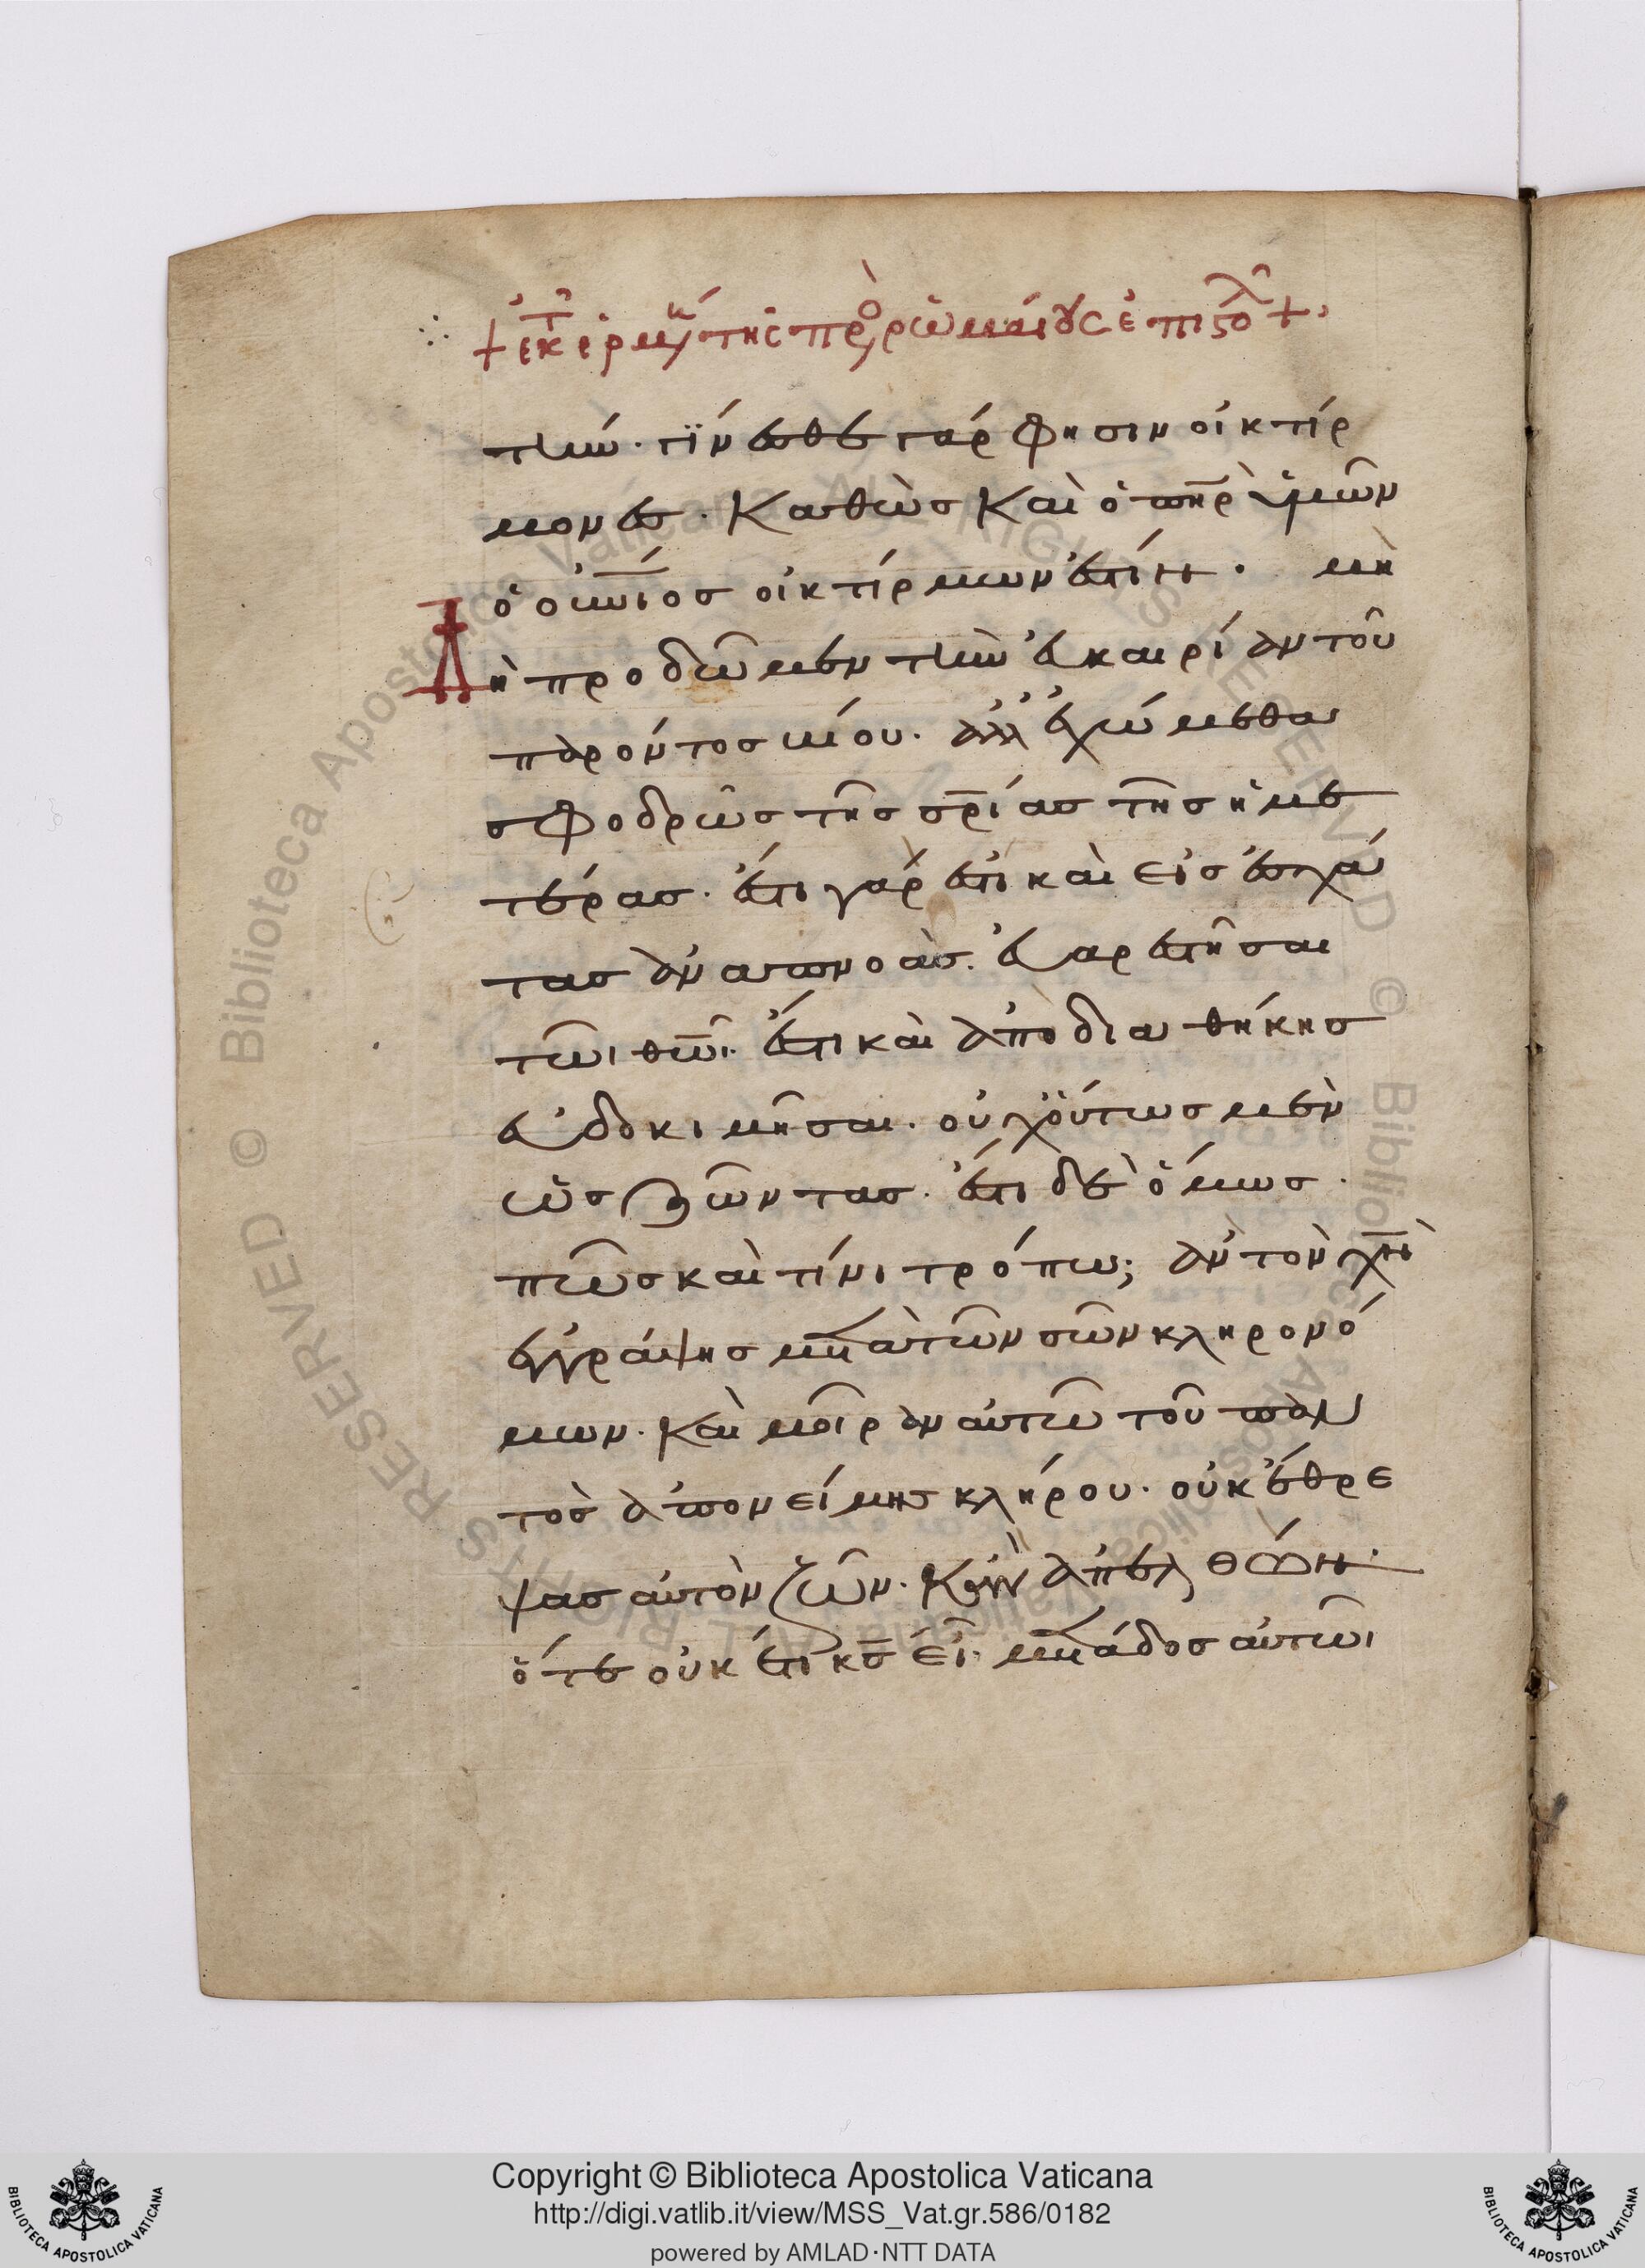 + ἐκ τ ἑρμην τῆς πρὸ ῥωμαίους ἐπιστολ +
την· γίνεσθε γάρ φησιν οἰκτίρ
μονες· καθὼς καὶ ὁ πηρ ὑμῶν
ὁ οὐνιος οἰκτίρμων ἐστίν· μὴ
δὴ προδῶμεν τὴν εὐκαιρίαν τοῦ
παρόντος βίου· ἀλλ ἐχώμεθα
σφοδρῶς τῆς σρίας τῆς ἡμε
τέρας· ἔτι γάρ ἐστι καὶ εἰς ἐσχά
τας ἀναπνοὰς εὐαρεστῆσαι
τῶι θῶι· ἔτι καὶ ἀπὸ διαθήκης
εὐδοκιμῆσαι· οὐχ οὕτως μὲν
ὡς ζῶντας· ἔστι δὲ ὅμως·
πῶς καὶ τίνι τρόπω; ἂν τὸν χν
ἐγγράψης μετὰ τῶν σῶν κληρονό
μων· καὶ μοῖραν αὐτῶ τοῦ παν
τὸς ἀπονείμης κλήρου· οὐκ ἔθρε
ψας αὐτὸν ζῶν· κἂν ἀπελθών·
ὅτε οὐκ ἔτι κς εἶ· μετάδος αὐτῶι
Copyright © Biblioteca Apostolica Vaticana
http://digi.vatlib.it/view/MSS_Vat.gr.586/0182
powered by AMLAD·NTT DATA
BIBLIOTECA APOSTOLICA VATICANA
BIBLIOTECA APOSTOLICA VATICANA